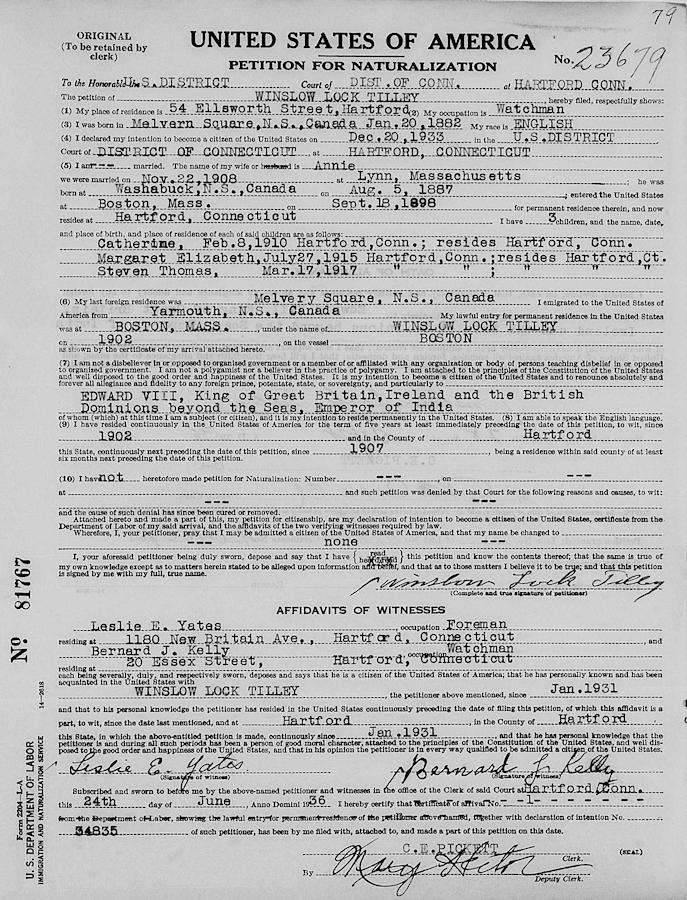 79
ORIGINAL
(To be retained by
clerk)
UNITED STATES OF AMERICA
PETITION FOR NATURALIZATION
No. 23679
To the Honorable the U.S. DISTRICT Court of DIST. OF CONN. at HARTFORD CONN.
The petition of WINSLOW LOCK TILLEY hereby filed, respectfully shows:
(1) My place of residence is 54 Ellsworth Street, Hartford (2) My occupation is Watchman
(3) I was born in Melvern Square, N.S., Canada Jan. 20, 1882 My race is ENGLISH
(4) I declared my intention to become a citizen of the United States on Dec. 20, 1933 in the U.S. DISTRICT
Court of DISTRICT OF CONNECTICUT, at HARTFORD, CONNECTICUT
(5) I am --- married. The name of my wife or husband is Annie
we were married on Nov. 22, 1908 at Lynn, Massachusetts ; he was
born at Washabuck, N.S., Canada on Aug. 5, 1887 ; entered the United States
at Boston, Mass. on Sept. 18, 1898 for permanent residence therein, and now
resides at Hartford, Connecticut I have 3 children, and the name, date,
and place of birth, and place of residence of each of said children are as follows:
Catherine, Feb. 8, 1910 Hartford, Conn.; resides Hartford, Conn.
Margaret Elizabeth, July 27, 1915 Hartford, Conn.; resides Hartford, Ct.
Steven Thomas, Mar. 17, 1917 " " ; " " "
(6) My last foreign residence was Melvery Square, N.S., Canada I emigrated to the United States of
America from Yarmouth, N.S., Canada My lawful entry for permanent residence in the United States
was at BOSTON, MASS. , under the name of WINSLOW LOCK TILLEY
on 1902 , on the vessel BOSTON
as shown by the certificate of my arrival attached hereto.
(7) I am not a disbeliever in or opposed to organised government or a member of or affiliated with any organization or body of persons teaching disbelief in or opposed
to organised government. I am not a polygamist nor a believer in the practice of polygamy. I am attached to the principles of the Constitution of the United States
and well disposed to the good order and happiness of the United States. It is my intention to become a citizen of the United States and to renounce absolutely and
forever all allegiance and fidelity to any foreign prince, potentate, state, or sovereignty, and particularly to
EDWARD VIII, King of Great Britain, Ireland and the British
Dominions beyond the Seas, Emperor of India
of whom (which) at this time I am a subject (or citizen), and it is my intention to reside permanently in the United States. (8) I am able to speak the English language.
(9) I have resided continuously in the United States of America for the term of five years at least immediately preceding the date of this petition, to wit, since
1902 and in the County of Hartford
this State, continuously next preceding the date of this petition, since 1907 , being a residence within said county of at least
six months next preceding the date of this petition.
(10) I have not heretofore made petition for Naturalization: Number --- , on ---
at --- and such petition was denied by that Court for the following reasons and causes, to wit:
---
and the cause of such denial has since been cured or removed.
Attached hereto and made a part of this, my petition for citizenship, are my declaration of intention to become a citizen of the United States, certificate from the
Department of Labor of my said arrival, and the affidavits of the two verifying witnesses required by law.
Wherefore, I, your petitioner, pray that I may be admitted a citizen of the United States of America, and that my name be changed to
--- none ---
I, your aforesaid petitioner being duly sworn, depose and say that I have { read heard read } this petition and know the contents thereof; that the same is true of
my own knowledge except as to matters herein stated to be alleged upon information and belief, and that as to those matters I believe it to be true; and that this petition
is signed by me with my full, true name.
Winslow Lock Tilley
(Complete and true signature of petitioner)
AFFIDAVITS OF WITNESSES
Leslie E. Yates occupation Foreman
residing at 1180 New Britain Ave., Hartford, Connecticut , and
Bernard J. Kelly occupation Watchman
residing at 20 Essex Street, Hartford, Connecticut
each being severally, duly, and respectively sworn, deposes and says that he is a citizen of the United States of America; that he has personally known and has been
acquainted in the United States with
WINSLOW LOCK TILLEY , the petitioner above mentioned, since Jan. 1931
and that to his personal knowledge the petitioner has resided in the United States continuously preceding the date of filing this petition, of which this affidavit is a
part, to wit, since the date last mentioned, and at Hartford , in the County of Hartford
this State, in which the above-entitled petition is made, continuously since Jan. 1931 , and that he has personal knowledge that the
petitioner is and during all such periods has been a person of good moral character, attached to the principles of the Constitution of the United States, and well dis-
posed to the good order and happiness of the United States, and that in his opinion the petitioner is in every way qualified to be admitted a citizen of the United States.
Leslie E. Yates Bernard J. Kelly
(Signature of witness) (Signature of witness)
Subscribed and sworn to before me by the above-named petitioner and witnesses in the office of the Clerk of said Court at Hartford, Conn.
this 24th day of June , Anno Domini 1936 I hereby certify that certificate of arrival No. - -1- - - - - -
from the Department of Labor, showing the lawful entry for permanent residence of the petitioner above named, together with declaration of intention No.
34835 of such petitioner, has been by me filed with, attached to, and made a part of this petition on this date.
C.E. PICKETT
Clerk.
(SEAL)
By Mary
Deputy Clerk.
Nº 81767
Form 2204—L-A
U. S. DEPARTMENT OF LABOR
IMMIGRATION AND NATURALIZATION SERVICE
14—2618